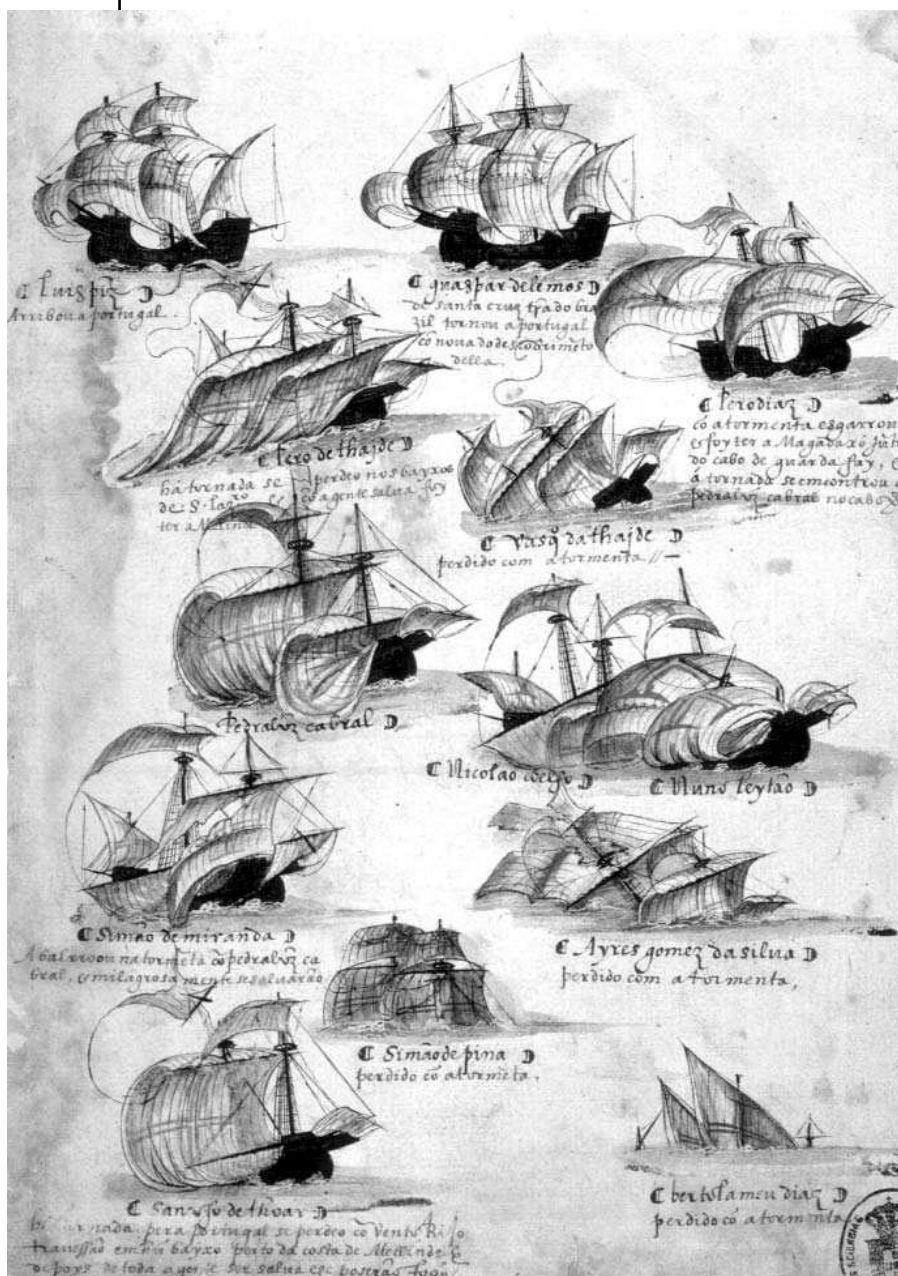 ¶ Luis piz D
Arribou a portugal.
¶ guaspar de lemos D
de santa cruz trã do bra
zil tornou a portugal
cõ nova do descobrimẽto
della.
¶ Pero diaz D
cõ a tormenta esgarrou
e foy ter a Magadaxó
do cabo de guarda fuy, e
á tornada se emcontrou
pedralvz cabral no cabo
¶ Pero de thajde D
há tornada se perdeo nos bayxos
de S. Lazro cõ a gente salva foy
ter a
¶ Vasq̃ da thajde D
perdido com a tormenta //—
Pedralvz cabral D
¶ Nicolao coelho D
¶ Nuno leytão D
¶ Simão de miranda D
Abalrroou na tormẽta cõ pedralvz ca
bral, e milagrosamente se salvarão
¶ Ayres gomez da silva D
perdido com a tormenta,
¶ Simão de pina D
perdido cõ a tormẽta.
¶ Sancho de thoar D
tornada pera portugal se perdeo cõ vento Rijo
travessão em hũ bayxo perto da costa de Mellinde
depoys de toda a gente ser salva poserão fogo
¶ bertolameu diaz D
perdido cõ a tormenta